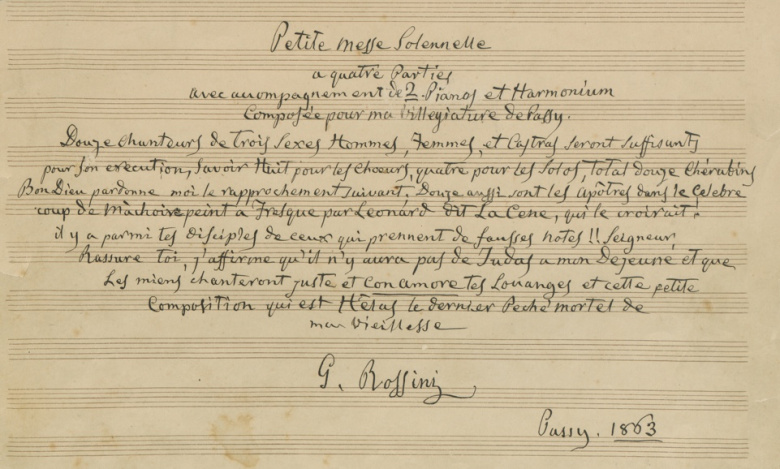 Petite Messe Solennelle
a quatre Parties
avec accompagnement de 2 Pianos et Harmonium
Composée pour ma Villegiature de Passy.
Douze Chanteurs de trois Sexes Hommes, Femmes, et Castras seront suffisants
pour son execution, Savoir Huit pour les Chœurs, quatre pour les Solos, total douze Chérubins
Bon Dieu pardonne moi le rapprochement suivant. Douze aussi sont les Apôtres dans le Celebre
coup de Mâchoire peint a Fresque par Leonard dit La Cene, qui le croirait!
il y a parmi tes disciples de ceux qui prennent de fausses notes!! Seigneur,
Rassure toi, j'affirme qu'il n'y aura pas de Judas a mon Dejeuné et que
Les miens chanteront juste et Con amore tes Louanges et cette petite
Composition qui est Hêlas le dernier Peché mortel de
ma Vieillesse
G. Rossini
Passy. 1863